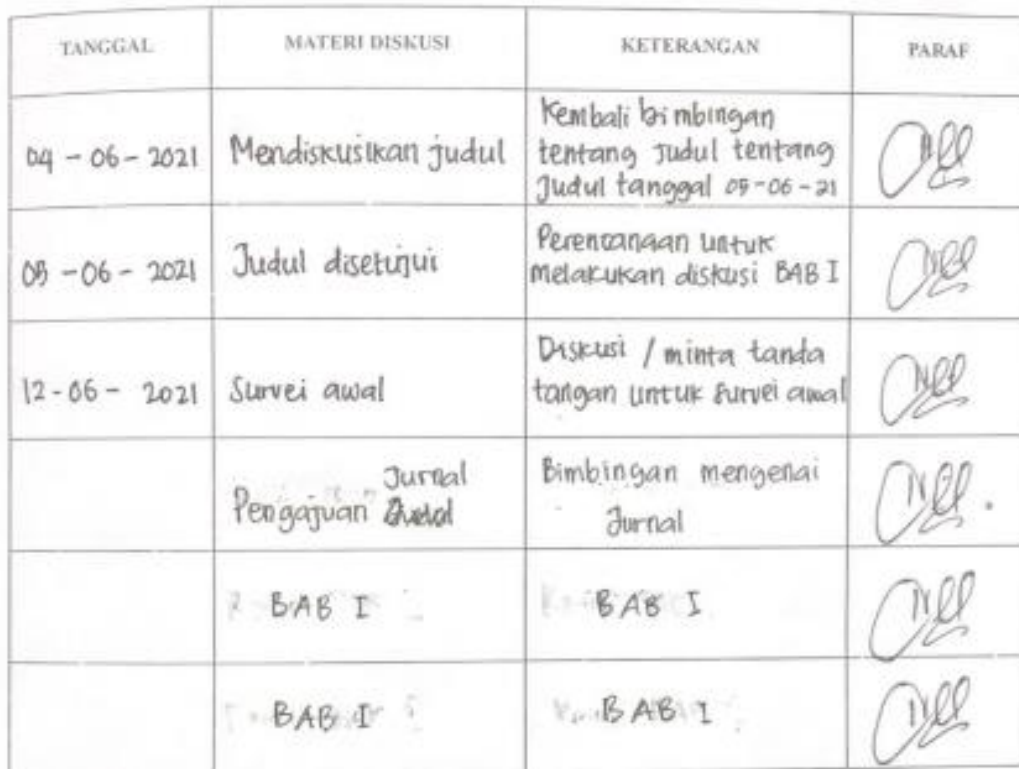 TANGGAL MATERI DISKUSI KETERANGAN PARAF
04 - 06 - 2021 Mendiskusikan judul Kembali bimbingan
tentang Judul tentang
Judul tanggal 05-06-21
05 - 06 - 2021 Judul disetujui Perencanaan untuk
melakukan diskusi BAB I
12 - 06 - 2021 Survei awal Diskusi / minta tanda
tangan untuk survei awal
Jurnal
Pengajuan Bimbingan mengenai
Jurnal
BAB I BAB I
BAB I BAB I